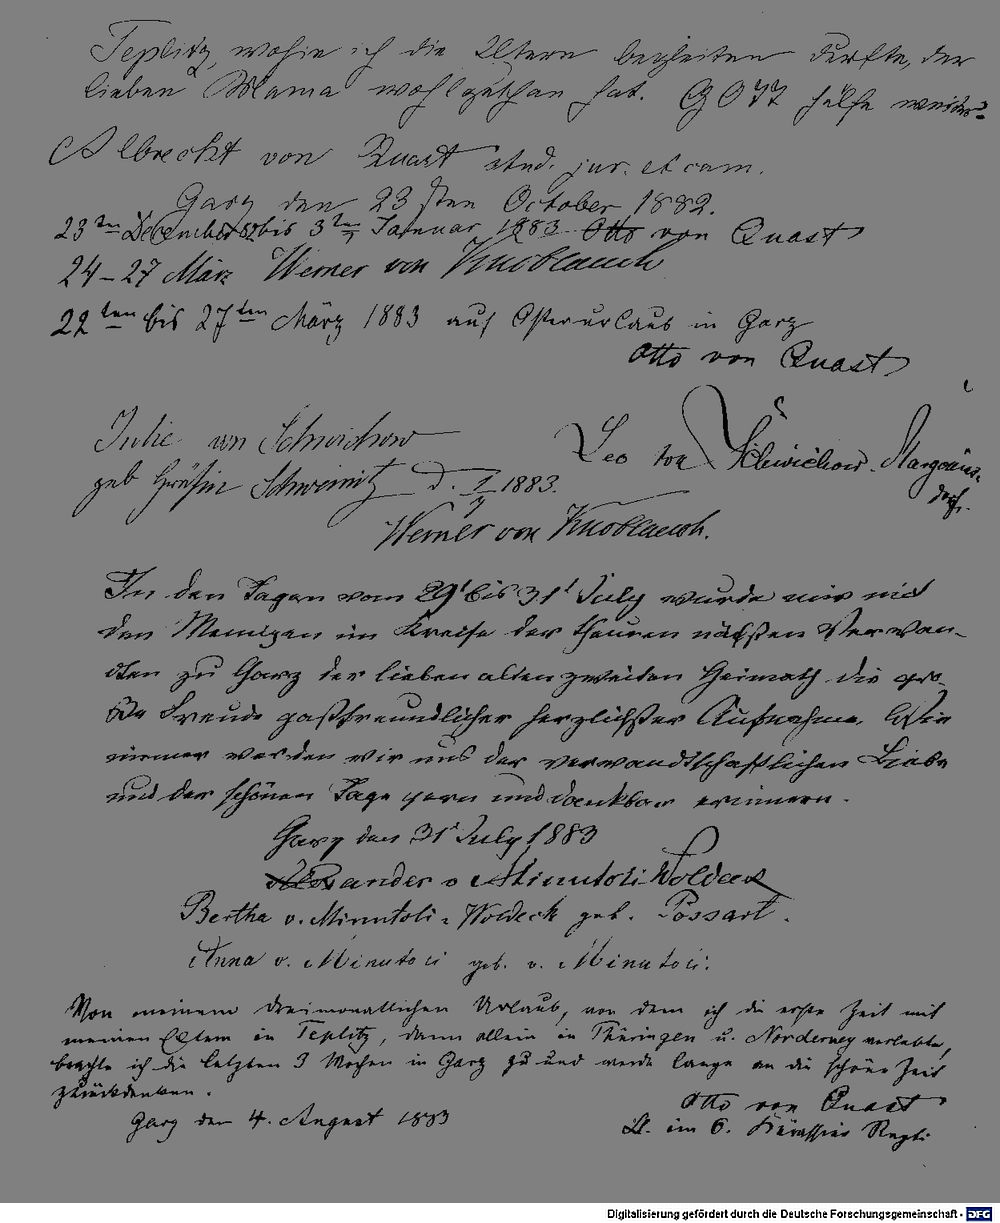 Teplitz, wohin ich die Eltern begleiten durfte, der
lieben Mama wohlgethan hat. GOTT helfe weiter!
Albrecht von Quast stud. jur. et cam.
Garz den 23sten October 1882.
23ten December 82 bis 3ten Januar 1883 Otto von Quast
24–27 März Werner von Knoblauch
22ten bis 27ten März 1883 auf Osterurlaub in Garz
Otto von Quast
Julie von Schwichow
geb Gräfin Schweinitz d. 1883.
Leo von Schwichow
Werner von Knoblauch.
In den Tagen vom 29t bis 31t July wurde mir und
den Meinigen im Kreise der theuren nächsten Verwan-
dten zu Garz der lieben alten zweiten Heimath die gro-
ße Freude gastfreundlicher herzlichster Aufnahme.
immer werden wir uns der verwandtschaftlichen Liebe
und der schönen Tage gern und dankbar erinnern.
Garz den 31t July 1883
Alexander v Minutoli-Woldeck
Bertha v. Minutoli-Woldeck geb. Possart.
Anna v. Minutoli geb. v. Minutoli.
Von meinem dreimonatlichen Urlaub, von dem ich die erste Zeit mit
meinen Eltern in Teplitz, dann allein in Thüringen u. Norderney verlebte,
brachte ich die letzten 3 Wochen in Garz zu und werde lange an die schöne Zeit
zurückdenken.
Otto von Quast
Garz den 4. August 1883
Lt. im 6. Kürassier Regt.
Digitalisierung gefördert durch die Deutsche Forschungsgemeinschaft - DFG